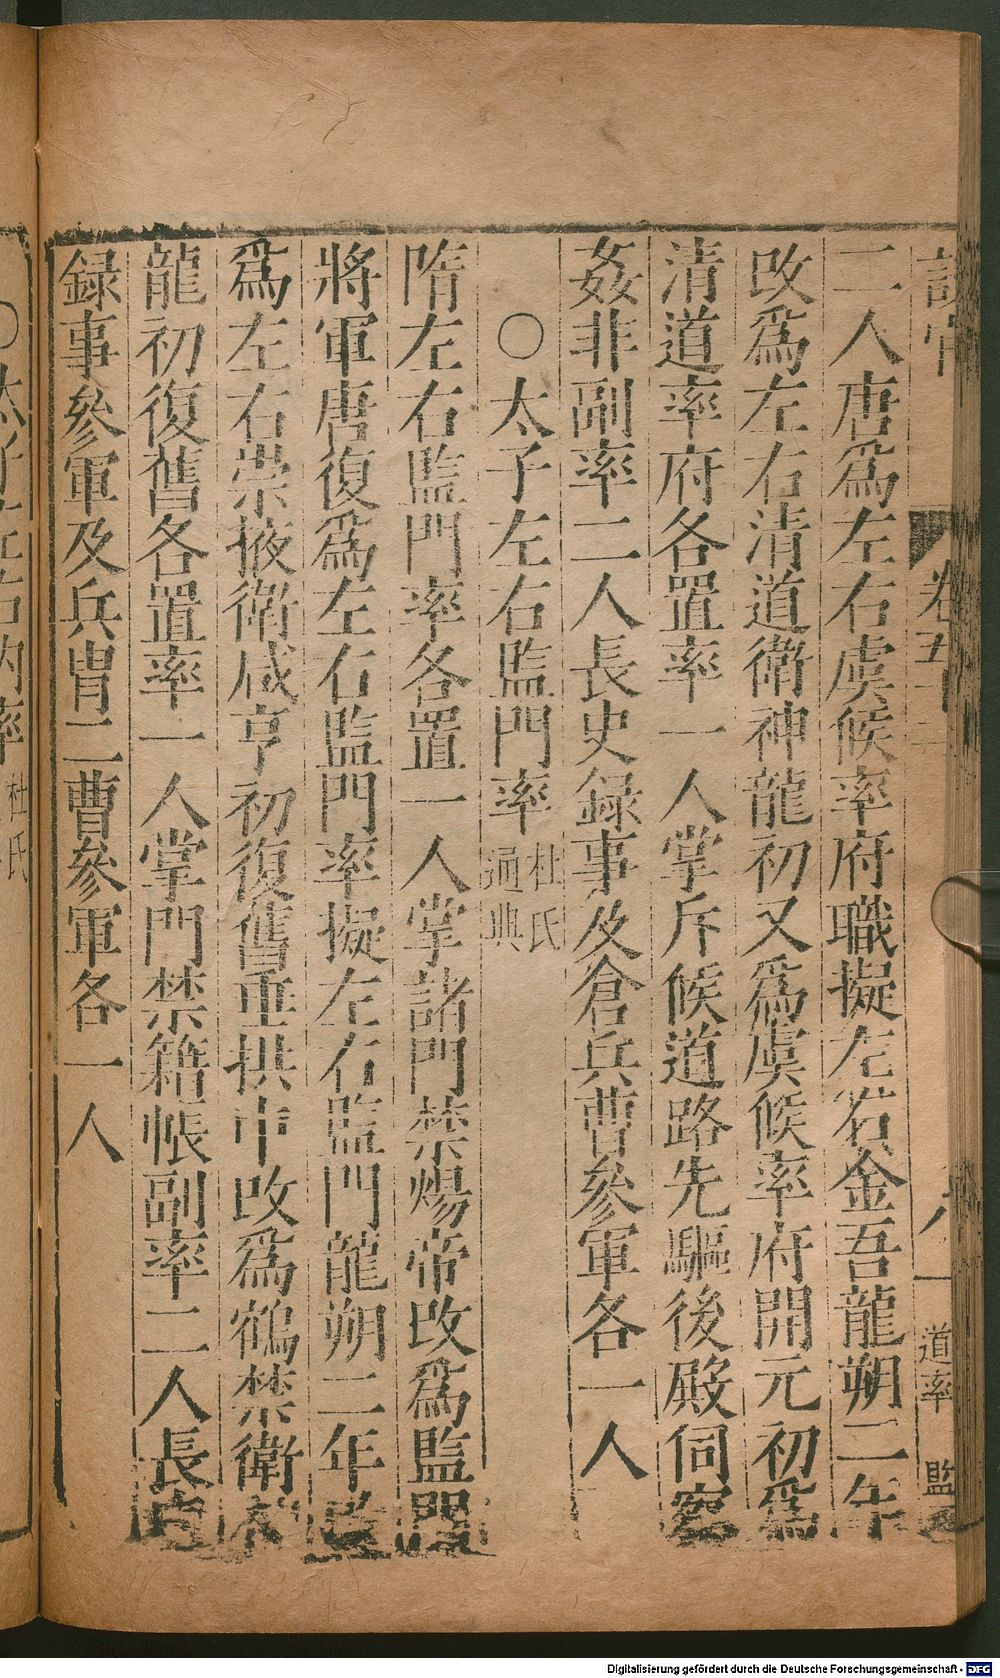 二人唐爲左右虞候率府職擬左右金吾龍朔二年
改爲左右清道衛神龍初又爲虞候率府開元初爲
清道率府各置率一人掌斥候道路先驅後殿伺察
姦非副率二人長史録事及倉兵曹參軍各一人
○太子左右監門率杜氏通典
隋左右監門率各置一人掌諸門禁煬帝改爲監門
將軍唐復爲左右監門率擬左右監門龍朔二年改
爲左右崇掖衛咸亨初復舊垂拱中改爲鶴禁衛神
龍初復舊各置率一人掌門禁籍帳副率二人長史
録事參軍及兵胄二曹參軍各一人
道率 監
杜氏
Digitalisierung gefördert durch die Deutsche Forschungsgemeinschaft - DFG